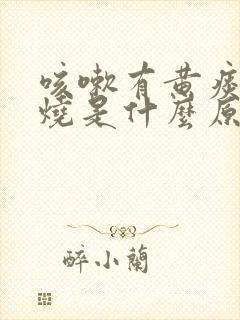 咳嗽有黄痰
燒是什麼原
醉小蘭